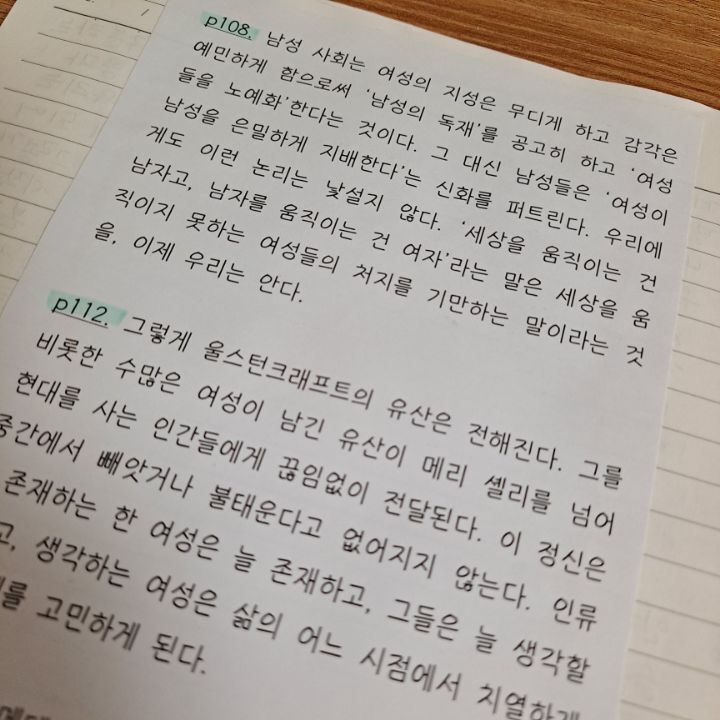 p108. 남성 사회는 여성의 지성은 무디게 하고 감각은
예민하게 함으로써 '남성의 독재'를 공고히 하고 '여성
들을 노예화'한다는 것이다. 그 대신 남성들은 '여성이
남성을 은밀하게 지배한다'는 신화를 퍼트린다. 우리에
게도 이런 논리는 낯설지 않다. '세상을 움직이는 건
남자고, 남자를 움직이는 건 여자'라는 말은 세상을 움
직이지 못하는 여성들의 처지를 기만하는 말이라는 것
을, 이제 우리는 안다.
p112. 그렇게 울스턴크래프트의 유산은 전해진다. 그를
비롯한 수많은 여성이 남긴 유산이 메리 셸리를 넘어
현대를 사는 인간들에게 끊임없이 전달된다. 이 정신은
중간에서 빼앗거나 불태운다고 없어지지 않는다. 인류
존재하는 한 여성은 늘 존재하고, 그들은 늘 생각할
고, 생각하는 여성은 삶의 어느 시점에서 치열하게
를 고민하게 된다.